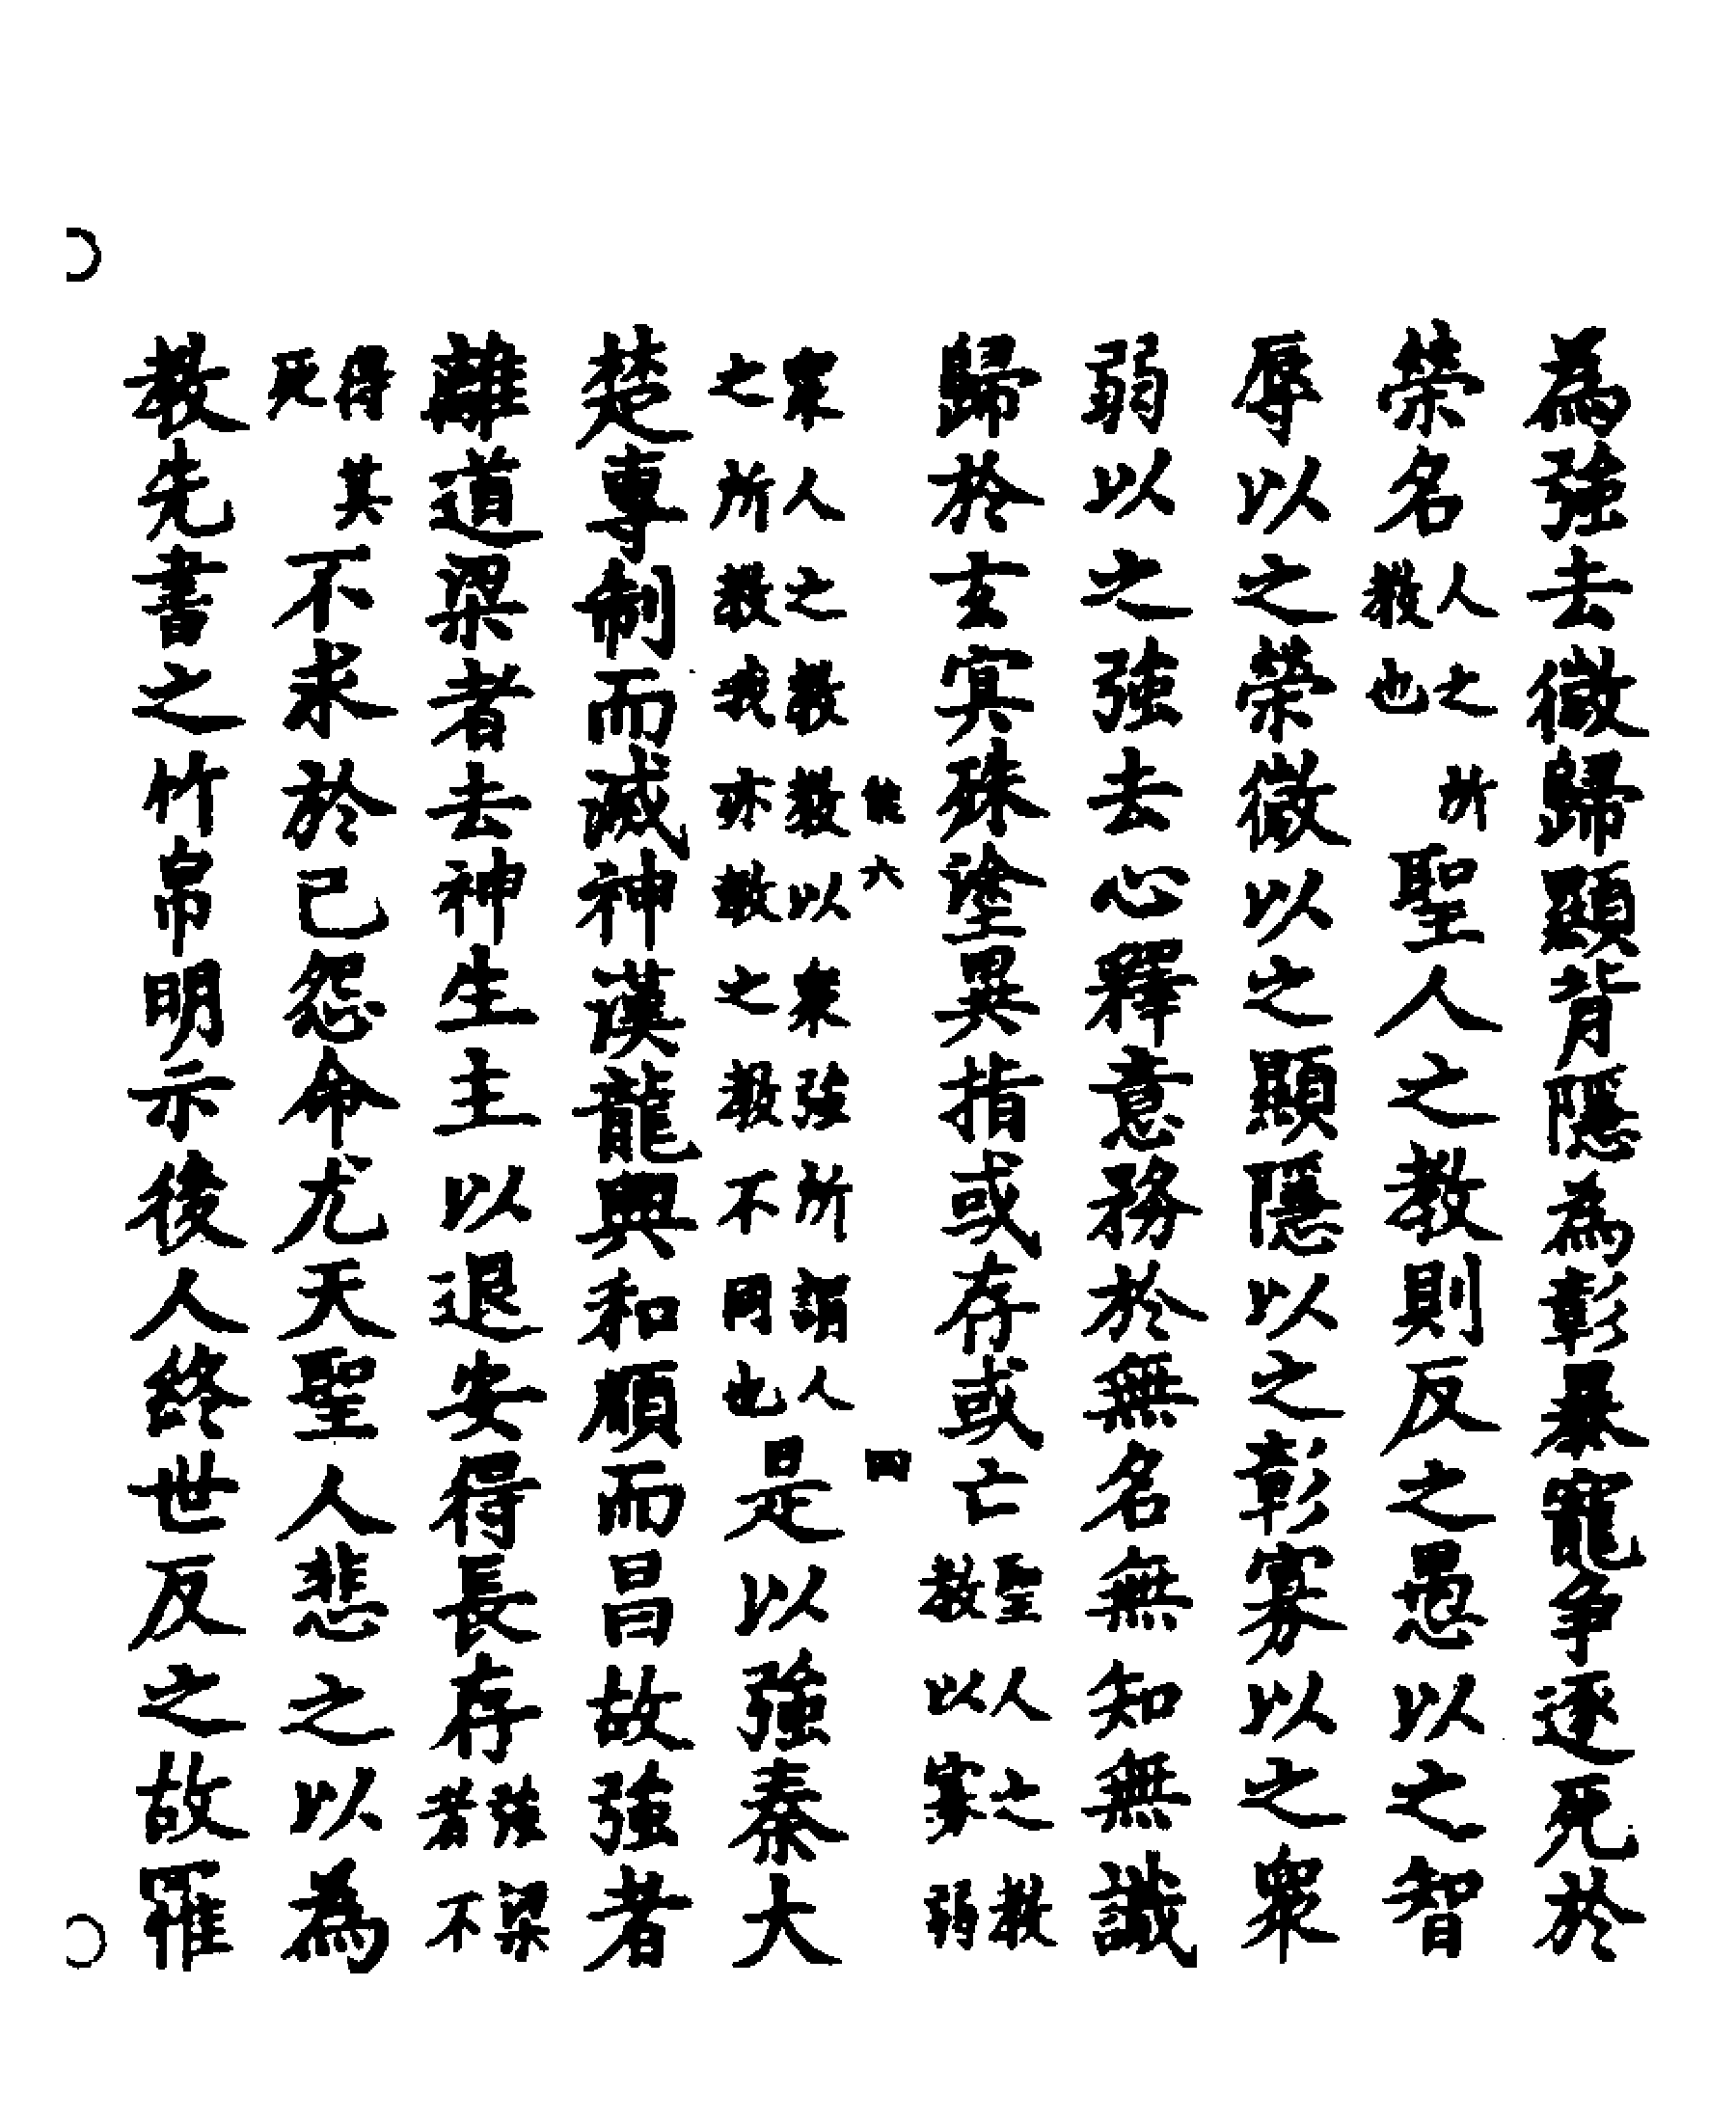 為強去微歸顯背隱為彰暴寵争逐死於
榮名人之所教也聖人之教則反之愚以之智
辱以之榮微以之顯隱以之彰寡以之衆
弱以之強去心釋意務於無名無知無識
歸於玄冥殊塗異指或存或亡聖人之教教以寡弱
能六
四
衆人之教教以衆強所謂人之所教我亦教之教不同也是以強秦大
楚專制而滅神漢龍興和順而昌故強者
離道梁者去神生主以退安得長存強梁者不
得其死不求於已怨命尤天聖人悲之以為
教先書之竹帛明示後人終世反之故罹